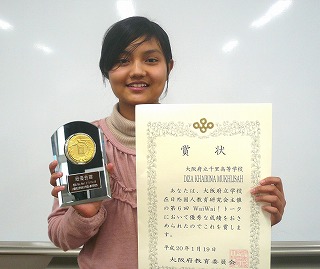 最優秀賞
賞状
大阪府立千里高等学校
DIZA KHAIRINA MUKHLISAH
あなたは、大阪府立学校
在日外国人教育研究会主催
の第６回WaiWai!トーク
において優秀な成績をおさ
められたのでこれを賞します。
平成20年1月19日
大阪府教育委員会